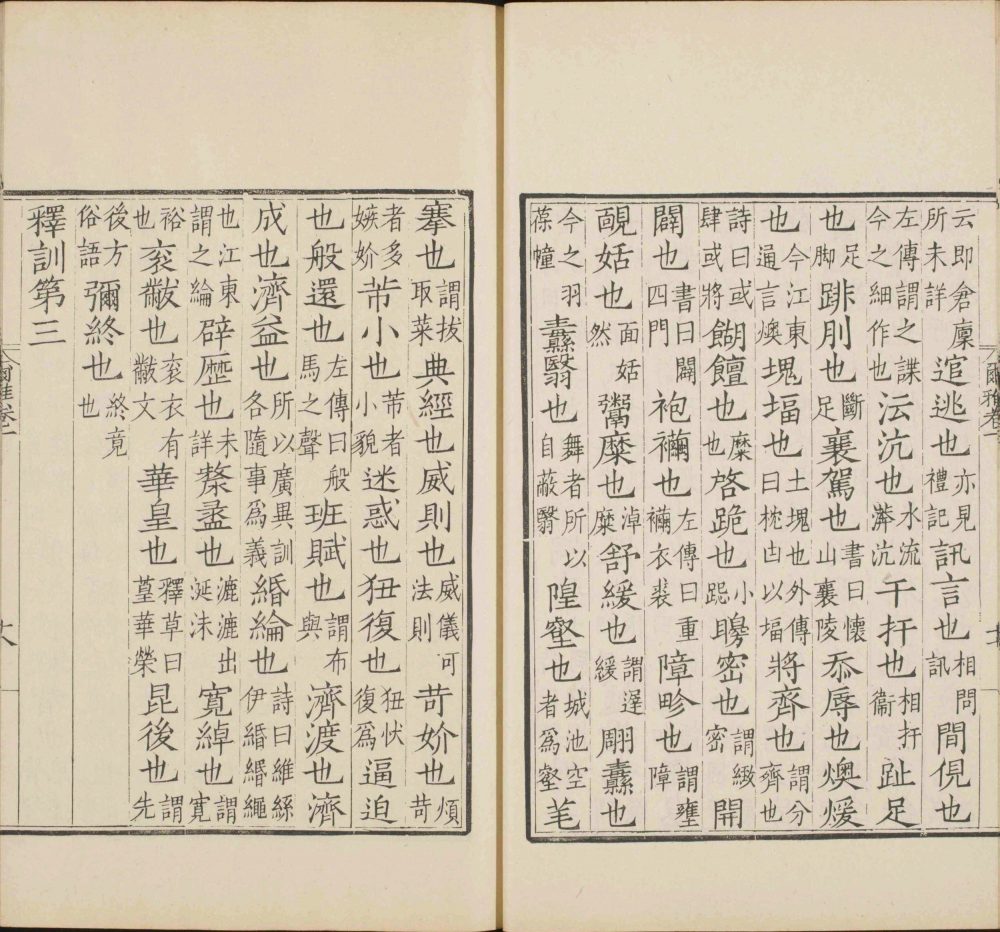 云即倉廩所未詳逭逃也亦見禮記訊言也相問訊間俔也
左傳謂之諜今之細作也沄沆也水流漭沆干扞也相扞衞趾足
也足脚䠊刖也斷足襄駕也書曰懷山襄陵忝辱也燠煖
也今江東通言燠塊堛也土塊也外傳曰枕凷以堛將齊也謂分齊也
詩曰或肆或將餬饘也糜也啓跪也小跽䁵密也謂緻密開
闢也書曰闢四門袍襺也左傳曰重襺衣裘障畛也謂壅障
靦姡也面姡然鬻糜也淖糜舒緩也謂遲緩翢纛也
今之羽葆幢纛翳也舞者所以自蔽翳隍壑也城池空者爲壑芼
搴也謂拔取菜典經也威則也威儀可法則苛妎也煩苛
者多嫉妎芾小也芾者小貌迷惑也狃復也狃忕復爲逼迫
也般還也左傳曰般馬之聲班賦也謂布與濟渡也濟
成也濟益也所以廣異訓各隨事爲義緍綸也詩曰維絲伊緍緡繩
也江東謂之綸辟歷也未詳漦盝也漉漉出涎沫寬綽也謂寬
裕也袞黻也袞衣有黻文華皇也釋草曰葟華榮昆後也謂先
後方俗語彌終也終竟也
釋訓第三